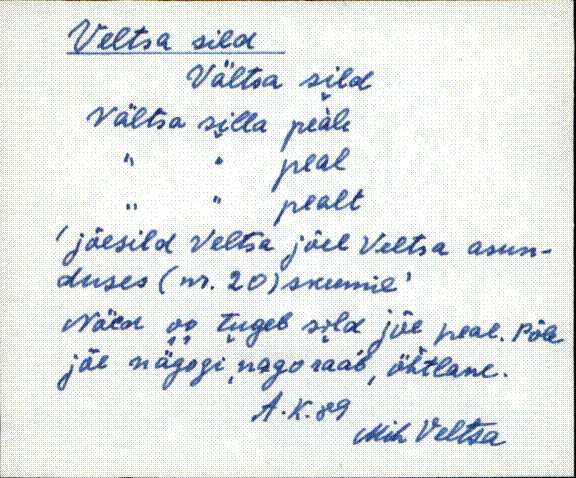 Veltsa sild
Vältsa sild
Vältsa silla peäle
" " peal
" " pealt
'jõesild Veltsa jõel Veltsa asun-
duses (nr. 20)
Nöed oo tugeb sild jõe peal. Põle
jõe nägogi, nago raab, õhtlane.
A. K. 89
Mih Veltsa